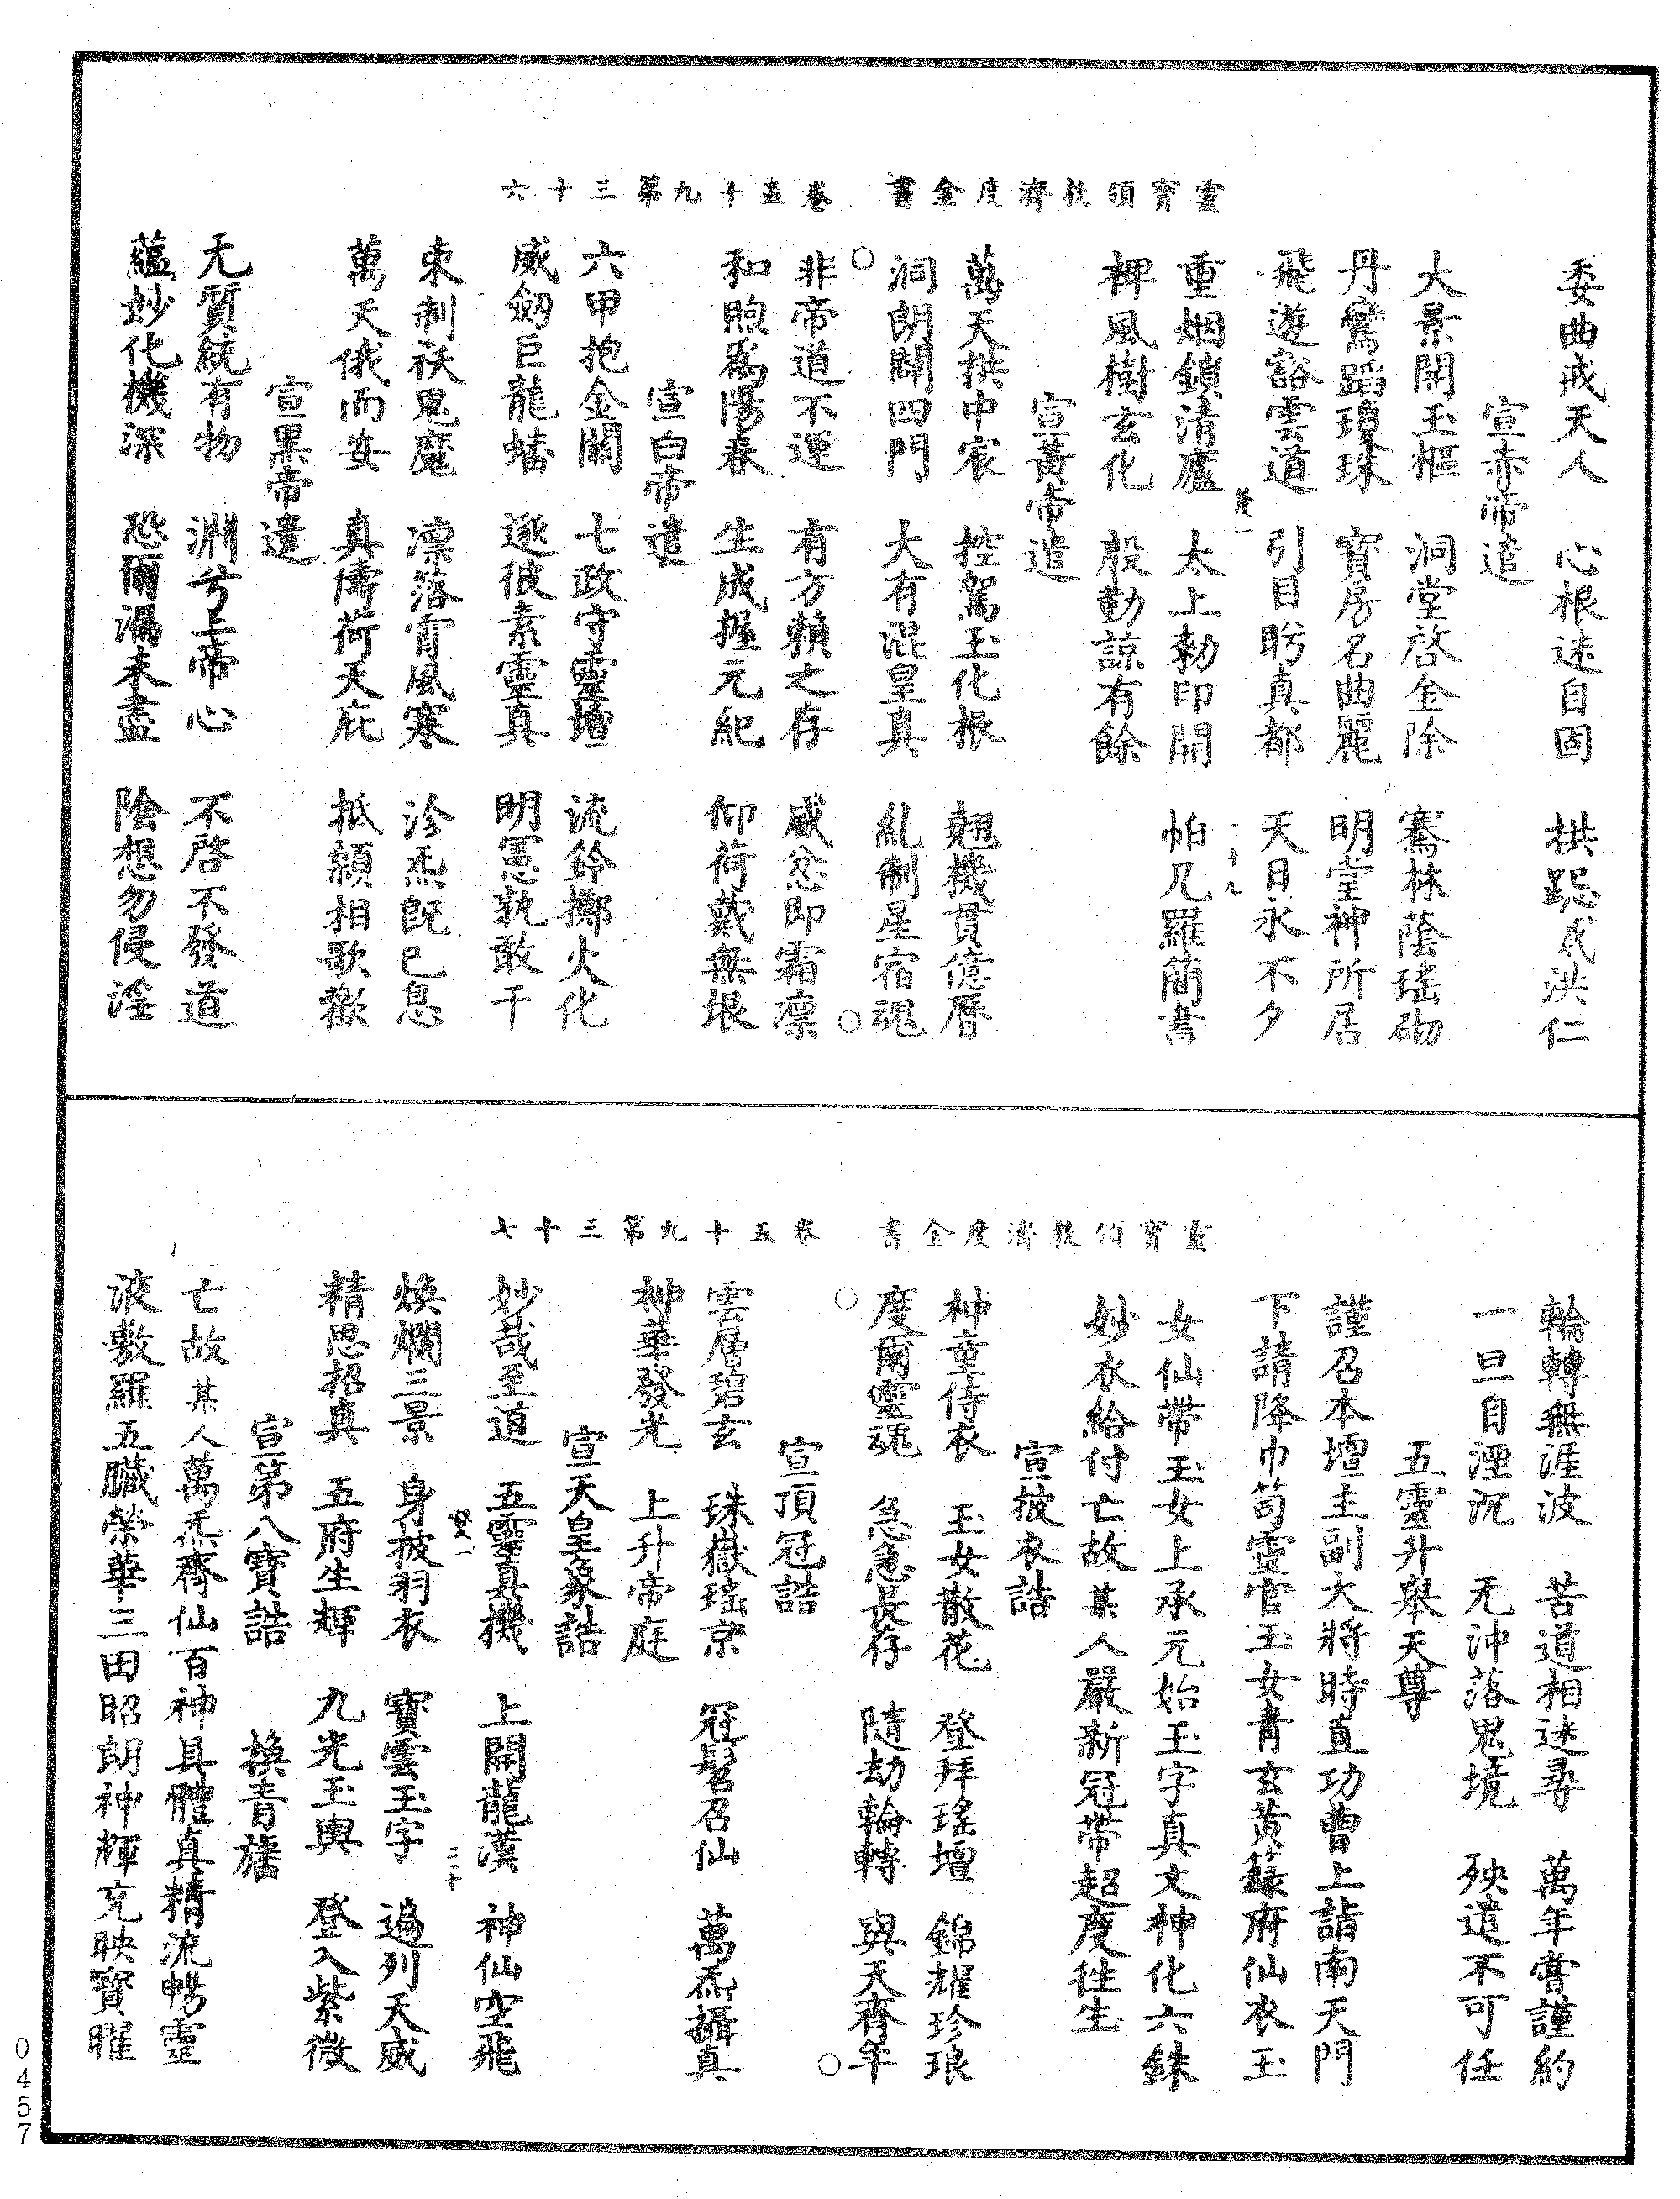 靈寶領教濟度金書　卷五十九第三十六
委曲戒天人　心根迷自固　拱跽貳洪仁
宣赤帝遣
大景開玉樞　洞堂啓金除　騫林蔭瑤砌
丹鸞蹈瓊珠　寶房名曲麗　明堂神所居
飛遊豁雲道　引目眄真都　天日永不夕
十九
重烟鎖清廬　太上勑印開　帕几羅簡書
裨風樹玄化　殷勤諒有餘
宣黃帝遣
萬天拱中宸　控駕玉化根　翹機貫億曆
洞朗闢四門　大有混皇真　亂制星宿魂
非帝道不運　有方賴之存　威忿即霜凛
和煦爲陽春　生成握元紀　仰荷戴無垠
宣白帝遣
六甲抱金關　七政守靈壇　流鈴擲火化
威劒巨龍蟠　逐彼素靈真　明憲孰敢干
束制祅鬼魔　凛落霄風寒　沴炁旣已息
萬天俄而安　真儔荷天庇　抵顙相歌歡
宣黑帝遣
无質統有物　淵兮上帝心　不啓不發道
蘊妙化機深　恐爾漏未盡　陰想勿侵淫
靈寶領教濟度金書　卷五十九第三十七
輪轉無涯波　苦道相迷尋　萬年當謹約
一旦自湮沉　无沖落鬼境　殃遣不可任
五靈升舉天尊
謹召本壇主副大將時直功曹上詣南天門
下請降巾笥靈官玉女青玄黃籙府仙衣玉
女仙帶玉女上承元始玉字真文神化六銖
妙衣給付亡故某人嚴新冠帶超度徃生
宣披衣誥
神童侍衣　玉女散花　登拜瑤壇　錦耀珍琅
度爾靈魂　急急長存　隨劫輪轉　與天齊年
宣頂冠誥
雲層碧玄　珠嶽瑤京　冠髻召仙　萬炁攝真
神華發光　上升帝庭
宣天皇象誥
妙哉至道　五靈真機　上開龍漢　神仙空飛
二十
煥爛三景　身披羽衣　寶雲玉字　遍列天威
精思招真　五府生輝　九光玉輿　登入紫微
宣第八寶誥　換青旛
亡故某人萬炁齊仙百神具體真精流暢靈
液敷羅五臟榮華三田昭朗神輝充映寶曜
0457